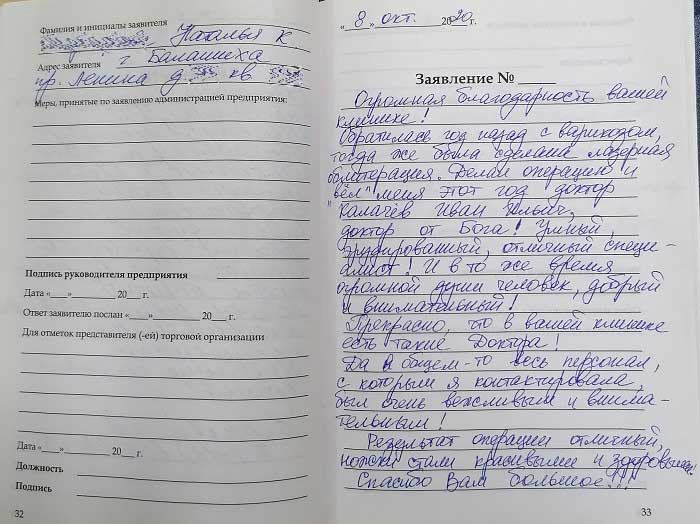 Фамилия и инициалы заявителя
Наталья К.
Адрес заявителя г Балашиха
пр. Ленина д. кв
Меры, принятые по заявлению администрацией предприятия:
Подпись руководителя предприятия
Дата «___» ________ 20___ г.
Ответ заявителю послан «___» ________ 20___ г.
Для отметок представителя (-ей) торговой организации
Дата «___» ________ 20___ г.
Должность
Подпись
32
«8» окт. 2020 г.
Заявление № ____
Огромная благодарность вашей
клинике!
Обратилась год назад с варикозом,
тогда же была сделана лазерная
облитерация. Делал операцию и
"вёл" меня этот год доктор
Калачёв Иван Ильич,
доктор от Бога! Умный,
эрудированный, отличный специ-
алист! И в то же время
огромной души человек, добрый
и внимательный!
Прекрасно, что в вашей клинике
есть такие Доктора!
Да и в общем-то весь персонал,
с которым я контактировала,
был очень вежливым и внима-
тельным!
Результат операции отличный,
ножки стали красивыми и здоровыми!
Спасибо Вам большое!!!
33